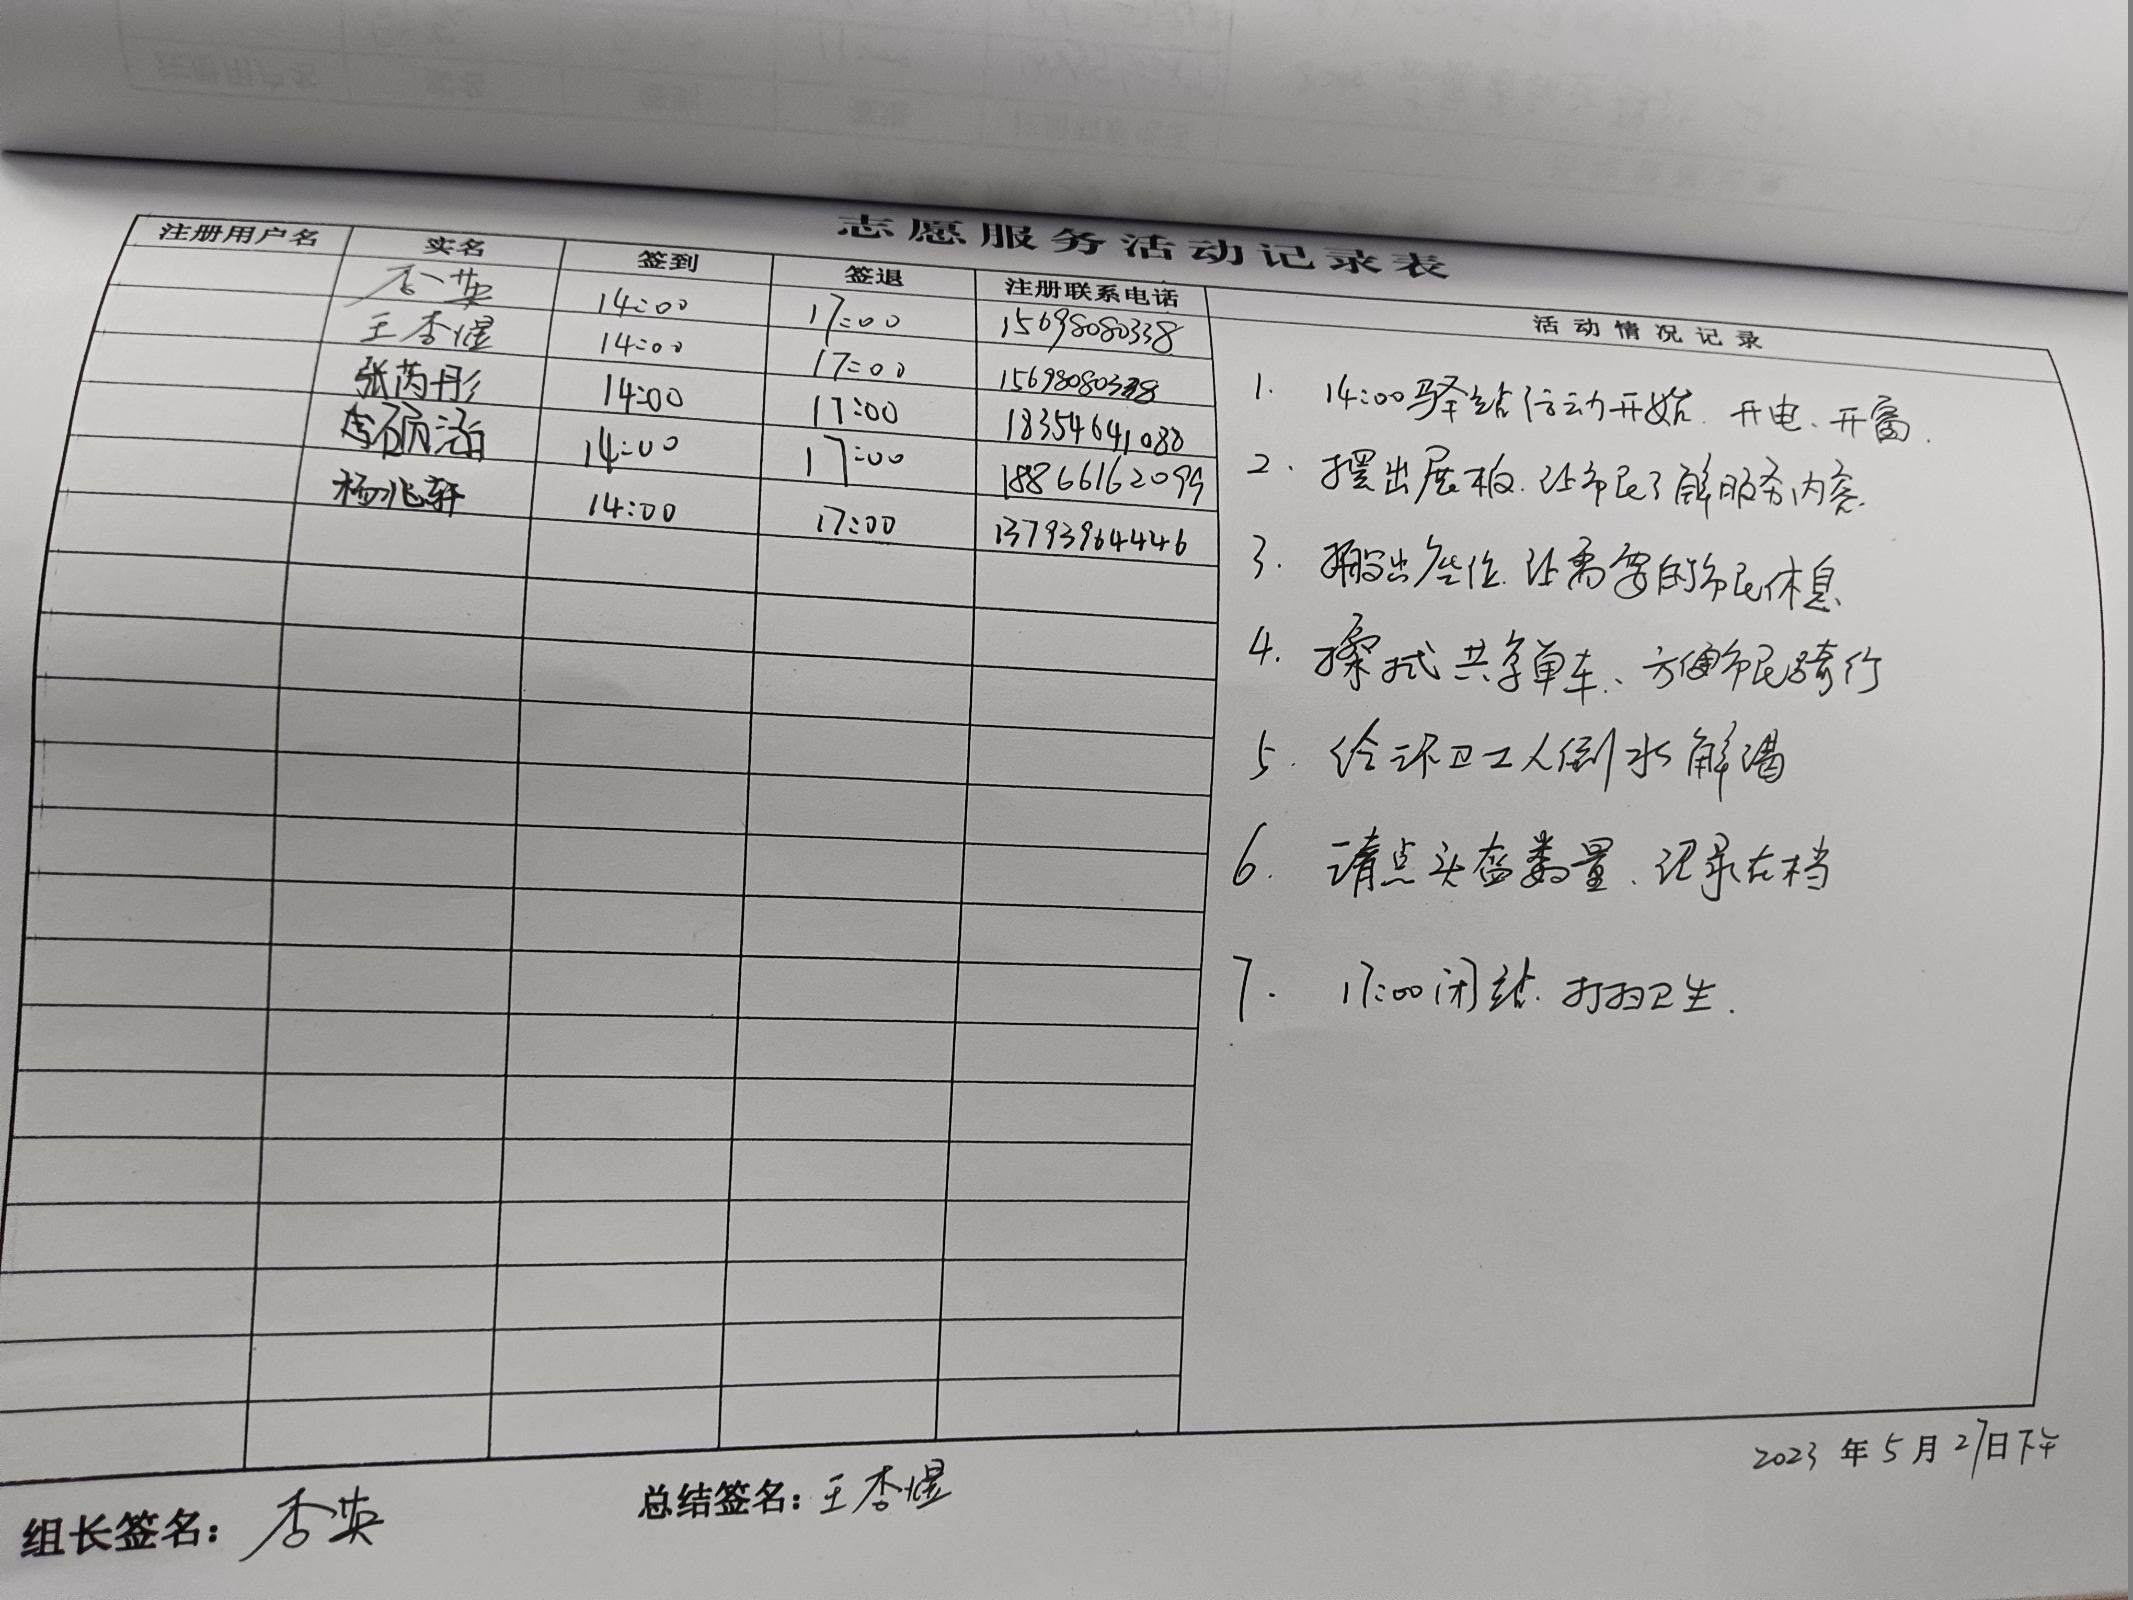 志愿服务活动记录表
注册用户名 实名 签到 签退 注册联系电话 活动情况记录
李英 14:00 17:00 15698080338
王李煜 14:00 17:00 15698080338
张芮彤 14:00 17:00 18354641088
李硕涵 14:00 17:00 18866162099
杨兆轩 14:00 17:00 13793964446
1. 14:00驿站活动开始. 开电、开窗.
2. 摆出展板. 让市民了解服务内容.
3. 搬出座位. 让需要的市民休息
4. 擦拭共享单车、方便市民骑行
5. 给环卫工人倒水解渴
6. 清点头盔数量、记录在档
7. 17:00闭站. 打扫卫生.
2023年5月27日下午
组长签名：李英
总结签名：王李煜